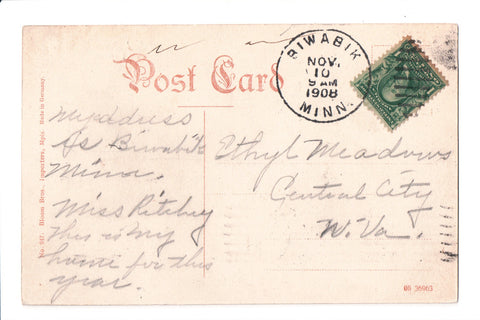 Post Card
BIWABIK
NOV.
10
9 AM
1908
MINN.
My address
Is Biwabik
Minn.
Miss Ritchey
This is my
home for this
year.
Ethyl Meadows
Central City
W. Va.
No. 517. Bloom Bros., Importers, Mpls. Made in Germany.
OB 36963